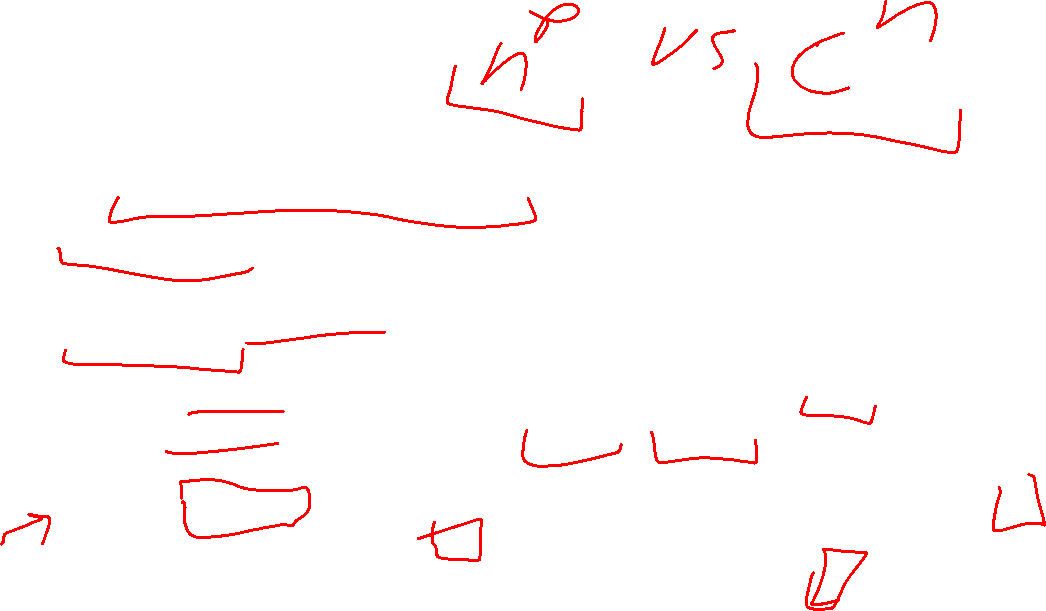 n^p vs c^n